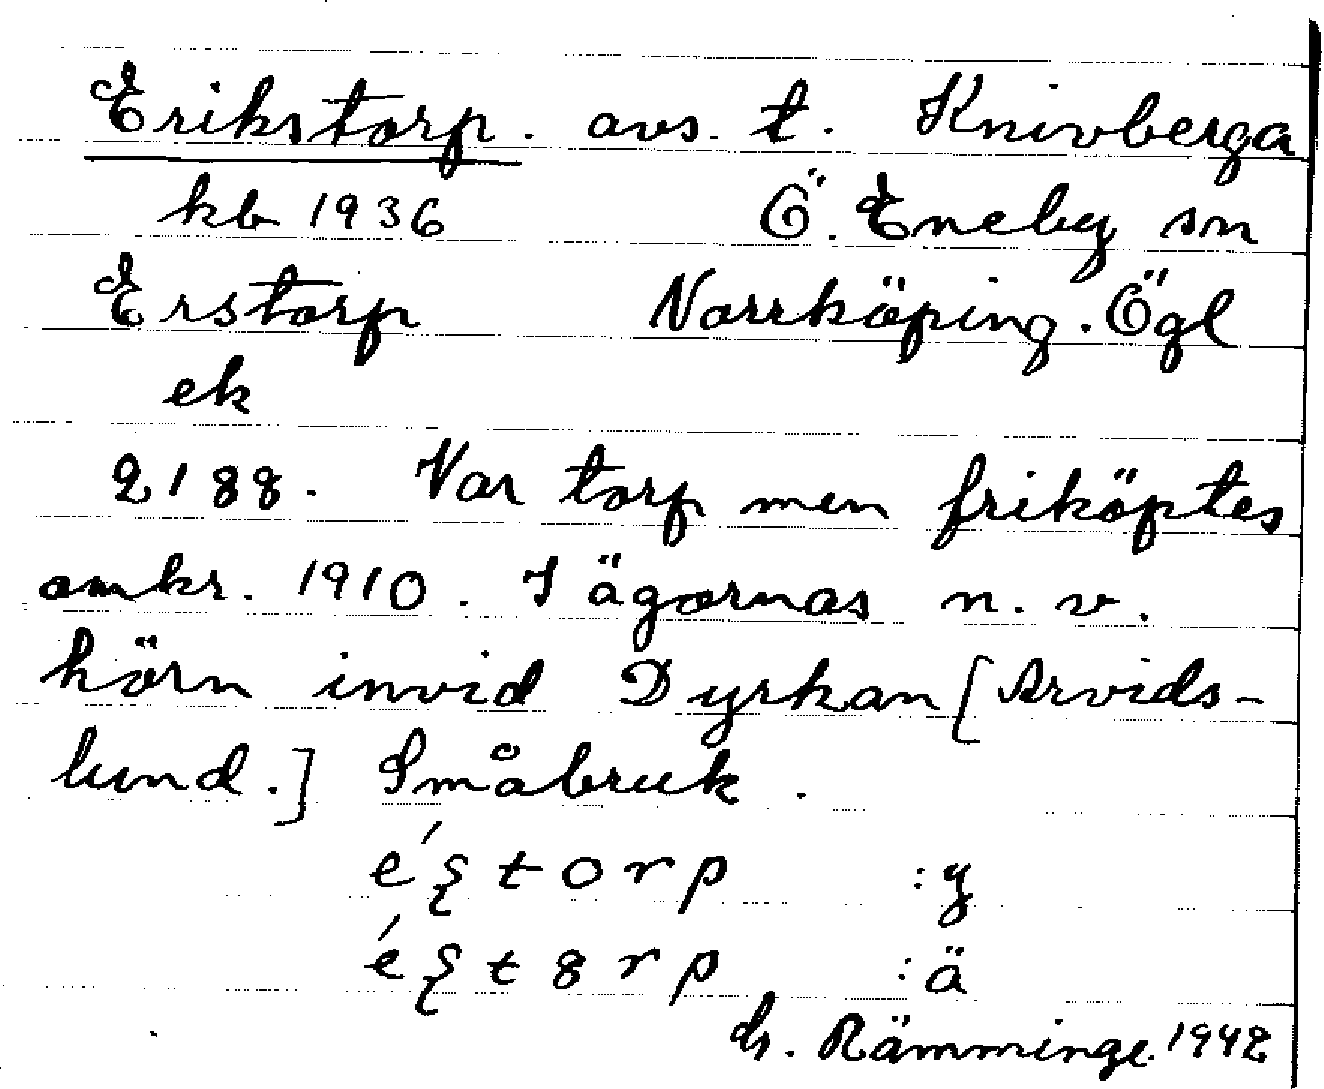 Erikstorp. avs. t. Knivberga
kb 1936 Ö. Eneby sn
Erstorp Norrköping. Ögl
ek
2188. Var torp men friköptes
omkr. 1910. I ägornas n. v.
hörn invid Dyrkan [Arvids-
lund.] Småbruk.
é ʂ t o r p :y
é ʂ t 8 r p :ä
Rämminge 1942